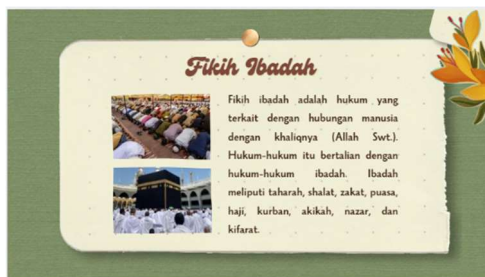 Fikih Ibadah
Fikih ibadah adalah hukum yang
terkait dengan hubungan manusia
dengan khaliqnya (Allah Swt.).
Hukum-hukum itu bertalian dengan
hukum-hukum ibadah. Ibadah
meliputi taharah, shalat, zakat, puasa,
haji, kurban, akikah, nazar, dan
kifarat.